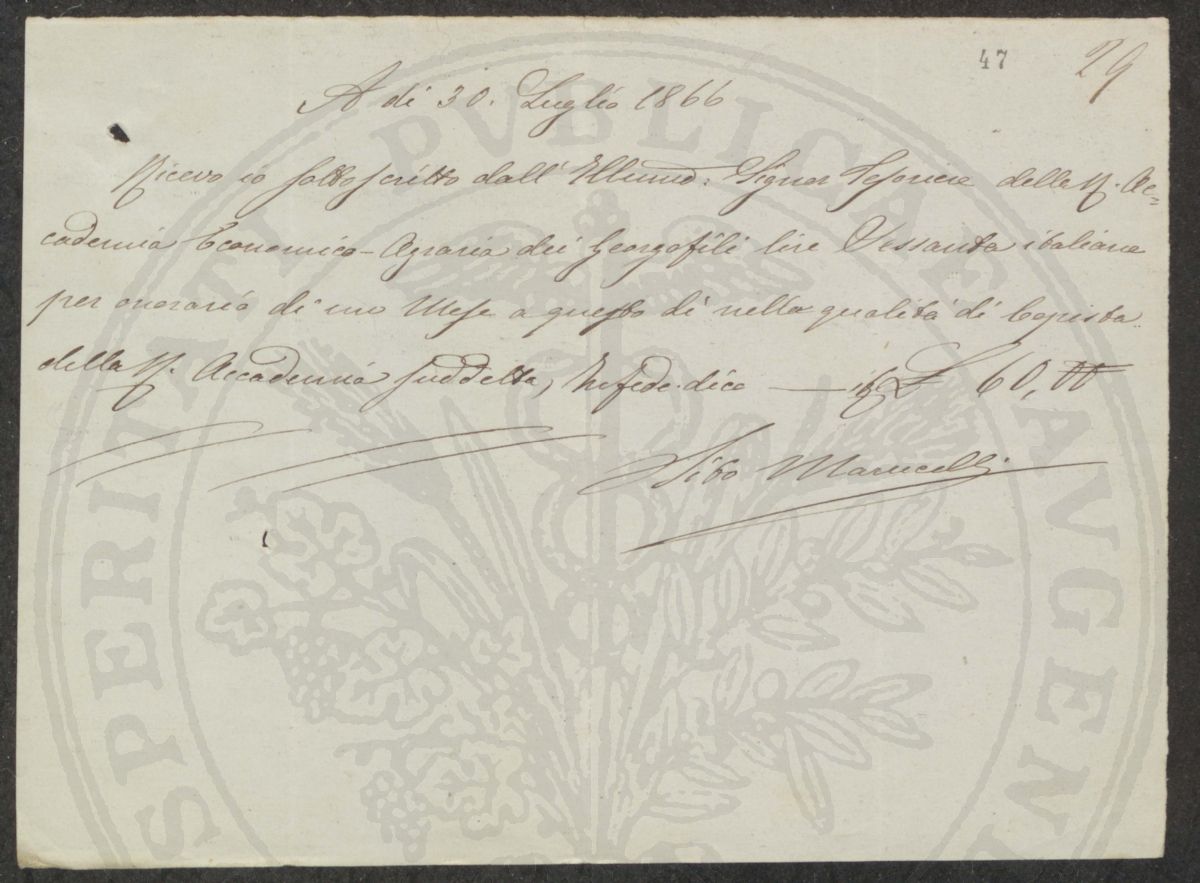 47 29
A dì 30. Luglio 1866
Ricevo io sottoscritto dall' Illumo: Signor Tesoriere della R. Ac=
cademia Economico-Agraria dei Georgofili lire Sessanta italiane
per onorario di un Mese a questo dì nella qualità di Copista
della R. Accademia suddetta, In fede dico — £ 60,00
Marucelli
PROSPERITATI PVBLICAE AVGENDAE